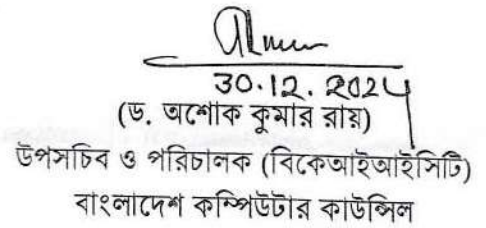 30.12.2024
(ড. অশোক কুমার রায়)
উপসচিব ও পরিচালক (বিকেআইআইসিটি)
বাংলাদেশ কম্পিউটার কাউন্সিল